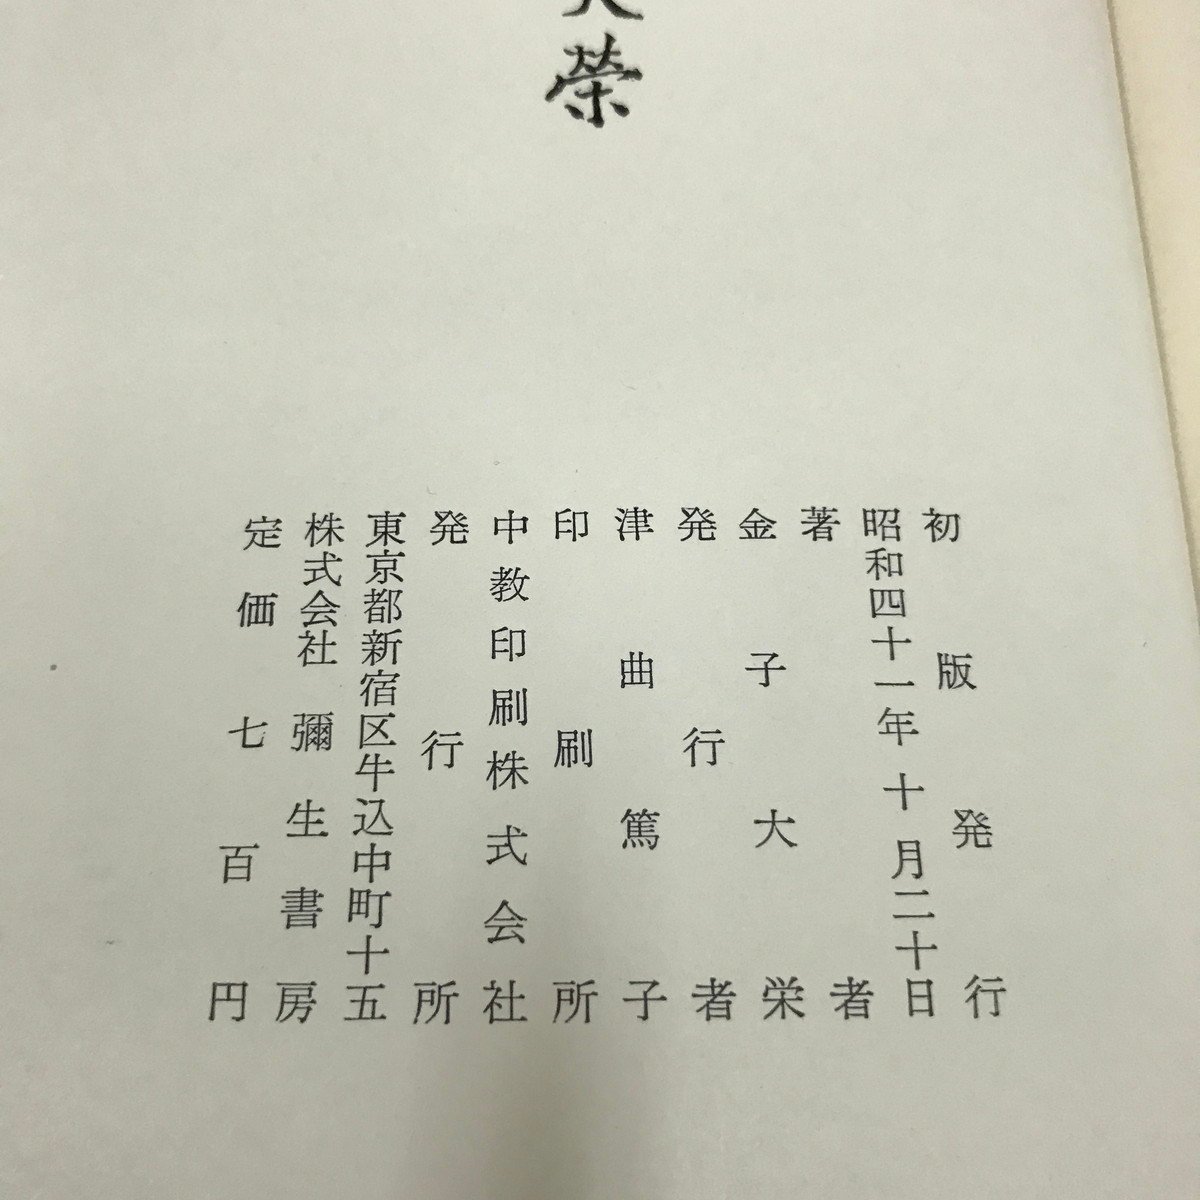 榮
初版発行
昭和四十一年十月二十日
著者
金子大栄
発行者
津曲篤子
印刷所
中教印刷株式会社
発行所
東京都新宿区牛込中町十五
株式会社彌生書房
定価七百円